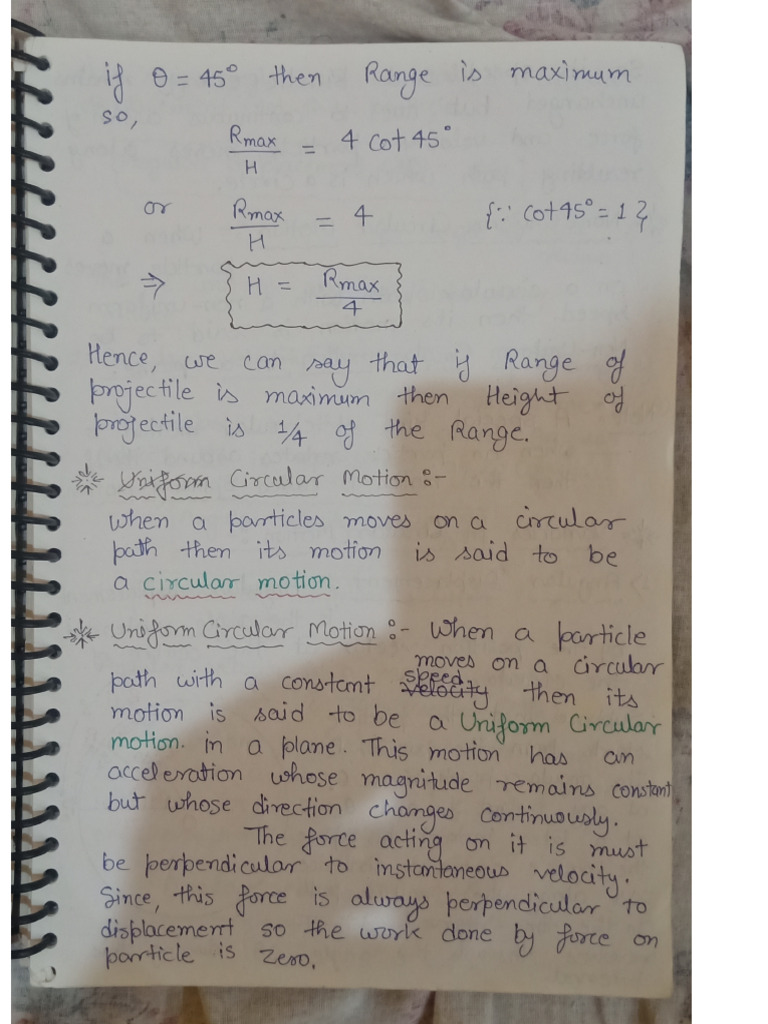 if θ = 45° then Range is maximum
so,
Rmax/H = 4 cot 45°
or Rmax/H = 4 {∵ cot 45° = 1}
⇒ H = Rmax/4
Hence, we can say that if Range of
projectile is maximum then Height of
projectile is 1/4 of the Range.
Uniform Circular Motion :-
When a particles moves on a circular
path then its motion is said to be
a circular motion.
Uniform Circular Motion :- When a particle
moves on a circular
path with a constant velocity speed then its
motion is said to be a Uniform Circular
motion. in a plane. This motion has an
acceleration whose magnitude remains constant
but whose direction changes continuously.
The force acting on it is must
be perpendicular to instantaneous velocity.
Since, this force is always perpendicular to
displacement so the work done by force on
particle is Zero.